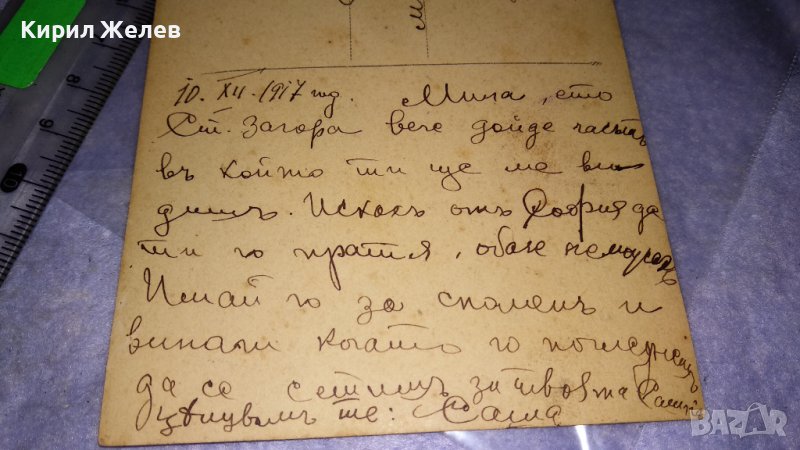 Кирил Желев
10. XII. 1917 год. Мила, ето
Ст. Загора вече дойде часътъ
въ който ти ще ме ви
дишъ. Искахъ отъ София да
ти го пратя, обаче не можахъ
Имай го за споменъ и
винаги когато го погледнешъ
да се сетишъ за твоята Саша
Цѣлувамъ те: Саша
BAZAR
8
9
10